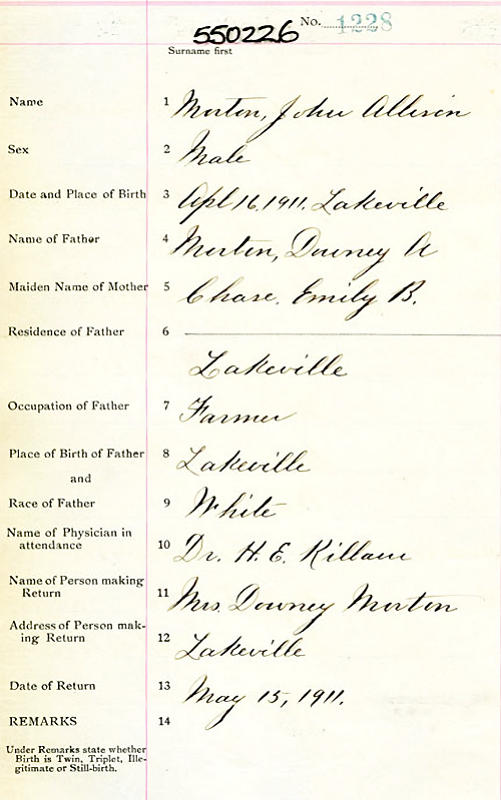 550226 No. 1228
Surname first
Name 1 Morton, John Allison
Sex 2 Male
Date and Place of Birth 3 Apl 16, 1911. Lakeville
Name of Father 4 Morton, Downey A
Maiden Name of Mother 5 Chase, Emily B.
Residence of Father 6
Lakeville
Occupation of Father 7 Farmer
Place of Birth of Father 8 Lakeville
and
Race of Father 9 White
Name of Physician in
attendance 10 Dr. H. E. Killam
Name of Person making
Return 11 Mrs. Downey Morton
Address of Person mak-
ing Return 12 Lakeville
Date of Return 13 May 15, 1911.
REMARKS 14
Under Remarks state whether
Birth is Twin, Triplet, Ille-
gitimate or Still-birth.